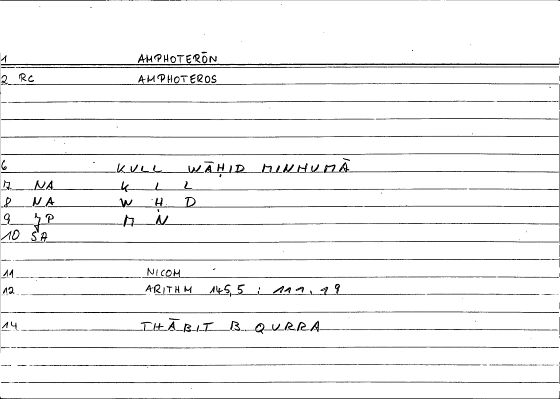 1 AMPHOTERŌN
2 RC AMPHOTEROS
6 KULL WĀḤID MINHUMĀ
7 NA K L L
8 NA W Ḥ D
9 M N
10 SA
11 NICOM
12 ARITHM 145,5 : 111.19
14 THĀBIT B QURRA